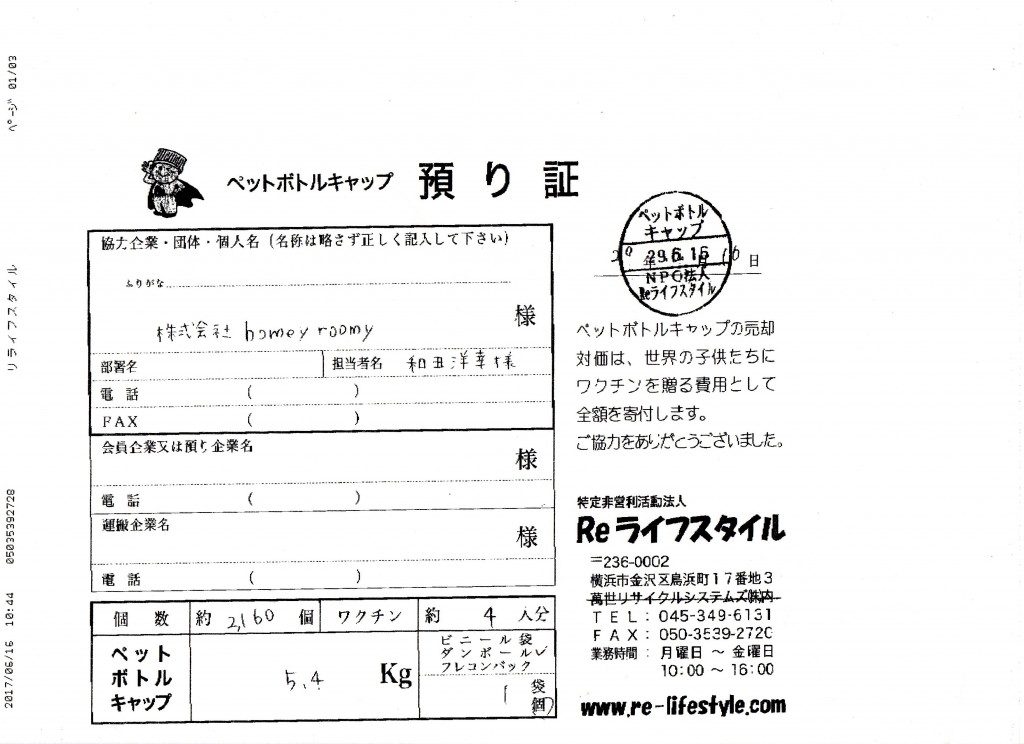 2017/06/16 10:44 05035392728 リライフスタイル ページ 01/03
ペットボトルキャップ 預り証
ペットボトル
キャップ
29.6.16
NPO法人
Reライフスタイル
29 年 6 月 16 日
協力企業・団体・個人名（名称は略さず正しく記入して下さい）
ふりがな
株式会社 homey roomy 様
部署名 担当者名 和田洋幸様
電話 ( )
FAX ( )
会員企業又は預り企業名
様
電話 ( )
運搬企業名
様
電話 ( )
個数 約 2,160 個 ワクチン 約 4 人分
ペット
ボトル
キャップ
5.4 Kg
ビニール袋
ダンボール✓
フレコンバック
1 袋
個
ペットボトルキャップの売却
対価は、世界の子供たちに
ワクチンを贈る費用として
全額を寄付します。
ご協力をありがとうございました。
特定非営利活動法人
Reライフスタイル
〒236-0002
横浜市金沢区鳥浜町17番地3
萬世リサイクルシステムズ㈱内
TEL：045-349-6131
FAX：050-3539-2720
業務時間：月曜日 ～ 金曜日
10:00 ～ 16:00
www.re-lifestyle.com